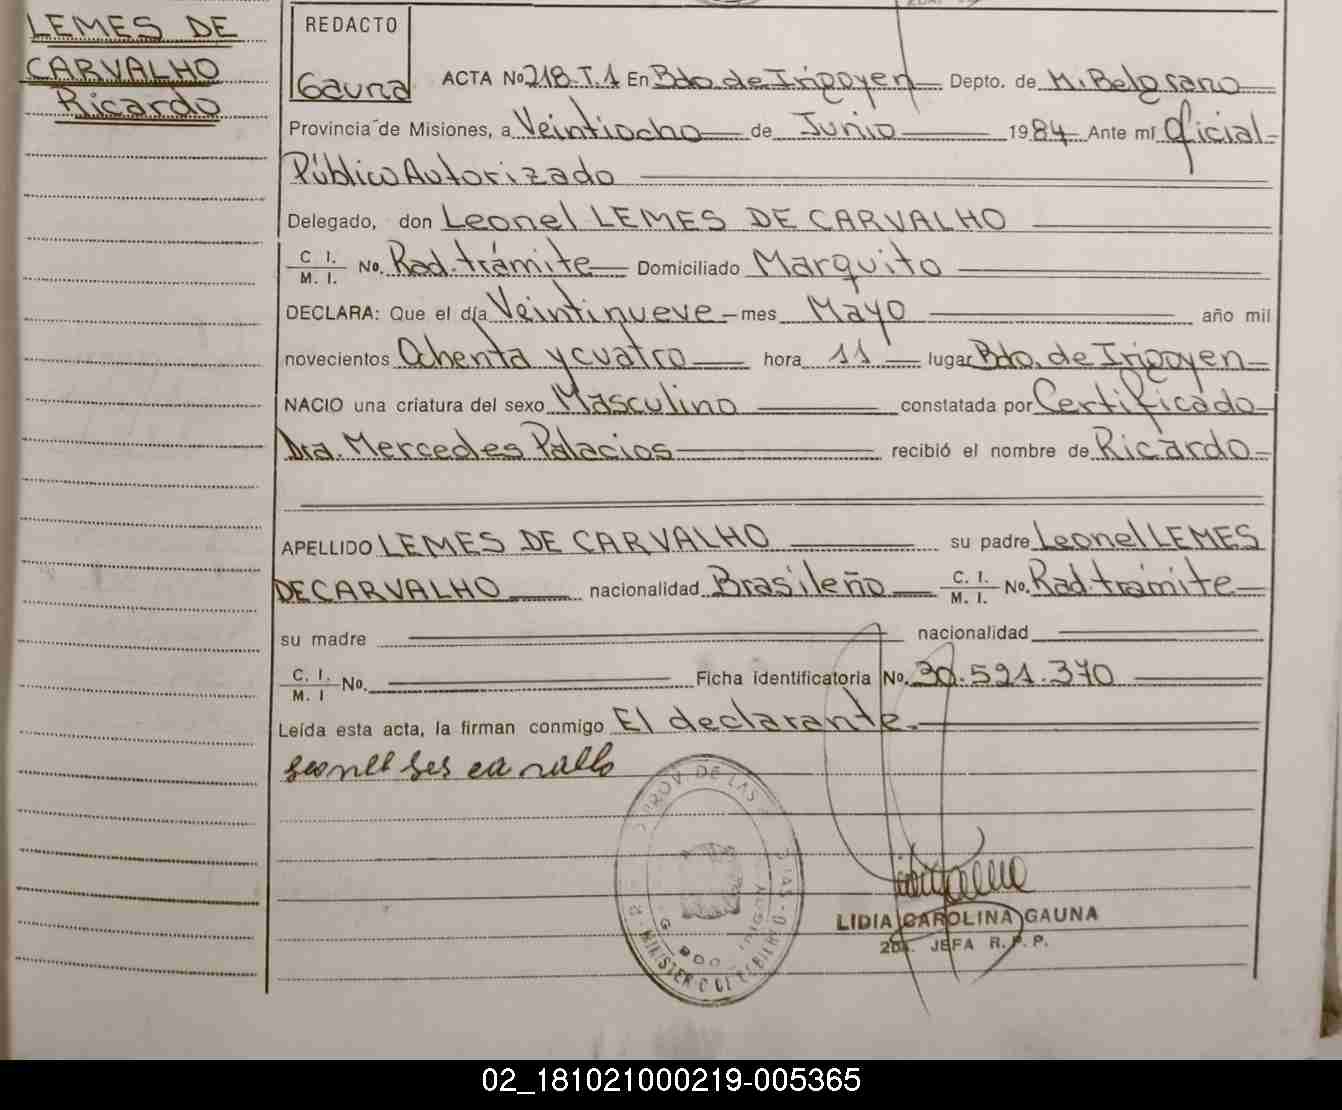 LEMES DE
CARVALHO
Ricardo
REDACTO
Gauna
ACTA No 218-T.1 En Bdo. de Irigoyen Depto. de M. Belgrano
Provincia de Misiones, a Veintiocho de Junio 1984 Ante mí Oficial
Público Autorizado
Delegado, don Leonel LEMES DE CARVALHO
C I. M. I. No. Rad. trámite Domiciliado Marquito
DECLARA: Que el día Veintinueve mes Mayo año mil
novecientos Ochenta y cuatro hora 11 lugar Bdo. de Irigoyen
NACIO una criatura del sexo Masculino constatada por Certificado
Dra. Mercedes Palacios recibió el nombre de Ricardo
APELLIDO LEMES DE CARVALHO su padre Leonel LEMES
DE CARVALHO nacionalidad Brasileño C. I. M. I. No. Rad. trámite
su madre nacionalidad
C. I. M. I No. Ficha identificatoria No. 30.591.370
Leída esta acta, la firman conmigo El declarante.
PROV. DE LAS
MINISTERIO DE GOBIERNO
LIDIA CAROLINA GAUNA
JEFA R. P. P.
02_181021000219-005365